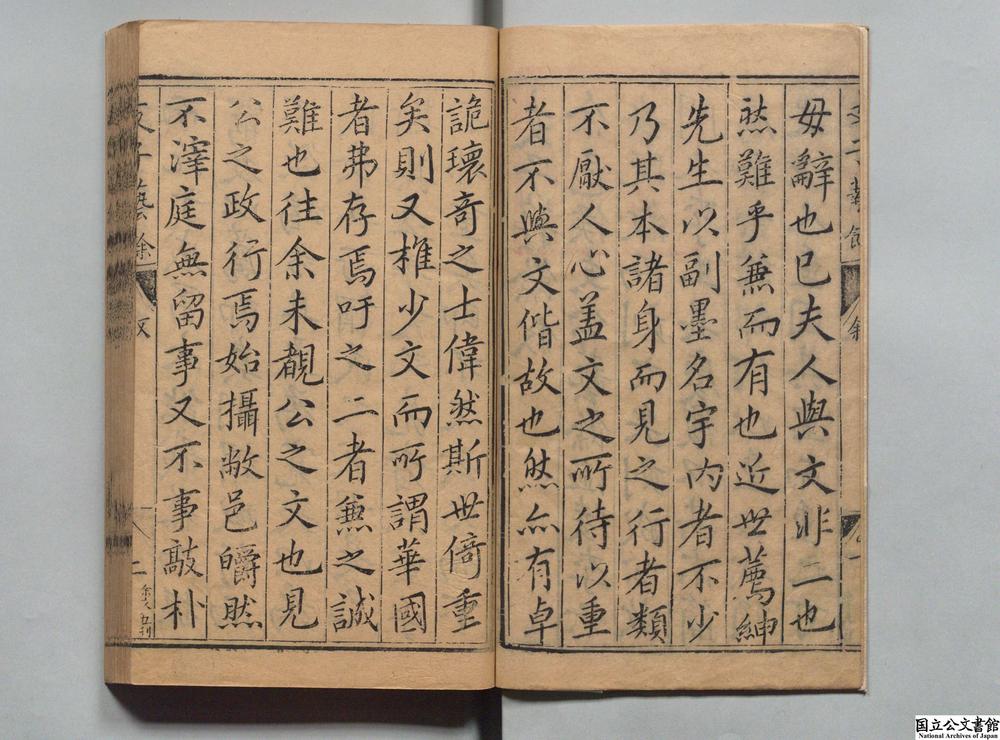 叙
毋辭也已夫人與文非二也
然難乎兼而有也近世薦紳
先生以副墨名宇内者不少
乃其本諸身而見之行者類
不厭人心盖文之所待以重
者不與文偕故也然亦有卓
詭瓌奇之士偉然斯世倚重
矣則又椎少文而所謂華國
者弗存焉吁之二者兼之誠
難也往余未覩公之文也見
公之政行焉始攝敝邑皭然
不滓庭無留事又不事敲朴
藝餘 叙
二
国立公文書館
National Archives of Japan